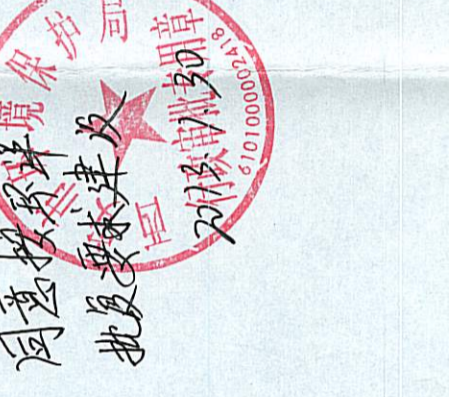 境保护局
行政审批专用章
6101000002418
同意按环评
批复要求建设
2013.1.30